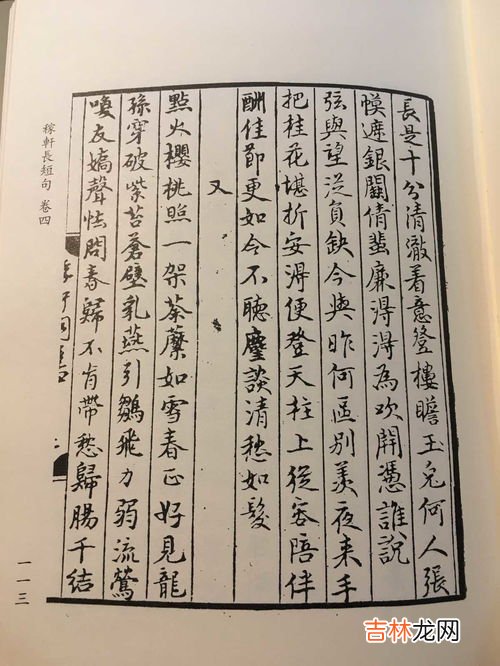 長是十分清澈着意登樓瞻玉兔何人張
幙遮銀闕倩蜚廉淂淂為吹開憑誰說
弦與望從員缺今與昨何區别羨夜来手
把桂花堪折安淂便登天柱上從容陪伴
酬佳節更如今不聽麈談清愁如髮
又
點火櫻桃照一架荼蘪如雪春正好見龍
孫穿破紫苔蒼壁乳燕引雛飛力弱流鶯
喚友嬌聲怯問春歸不肯帶愁歸腸千結
稼軒長短句 卷四
一一三
吉林龙网